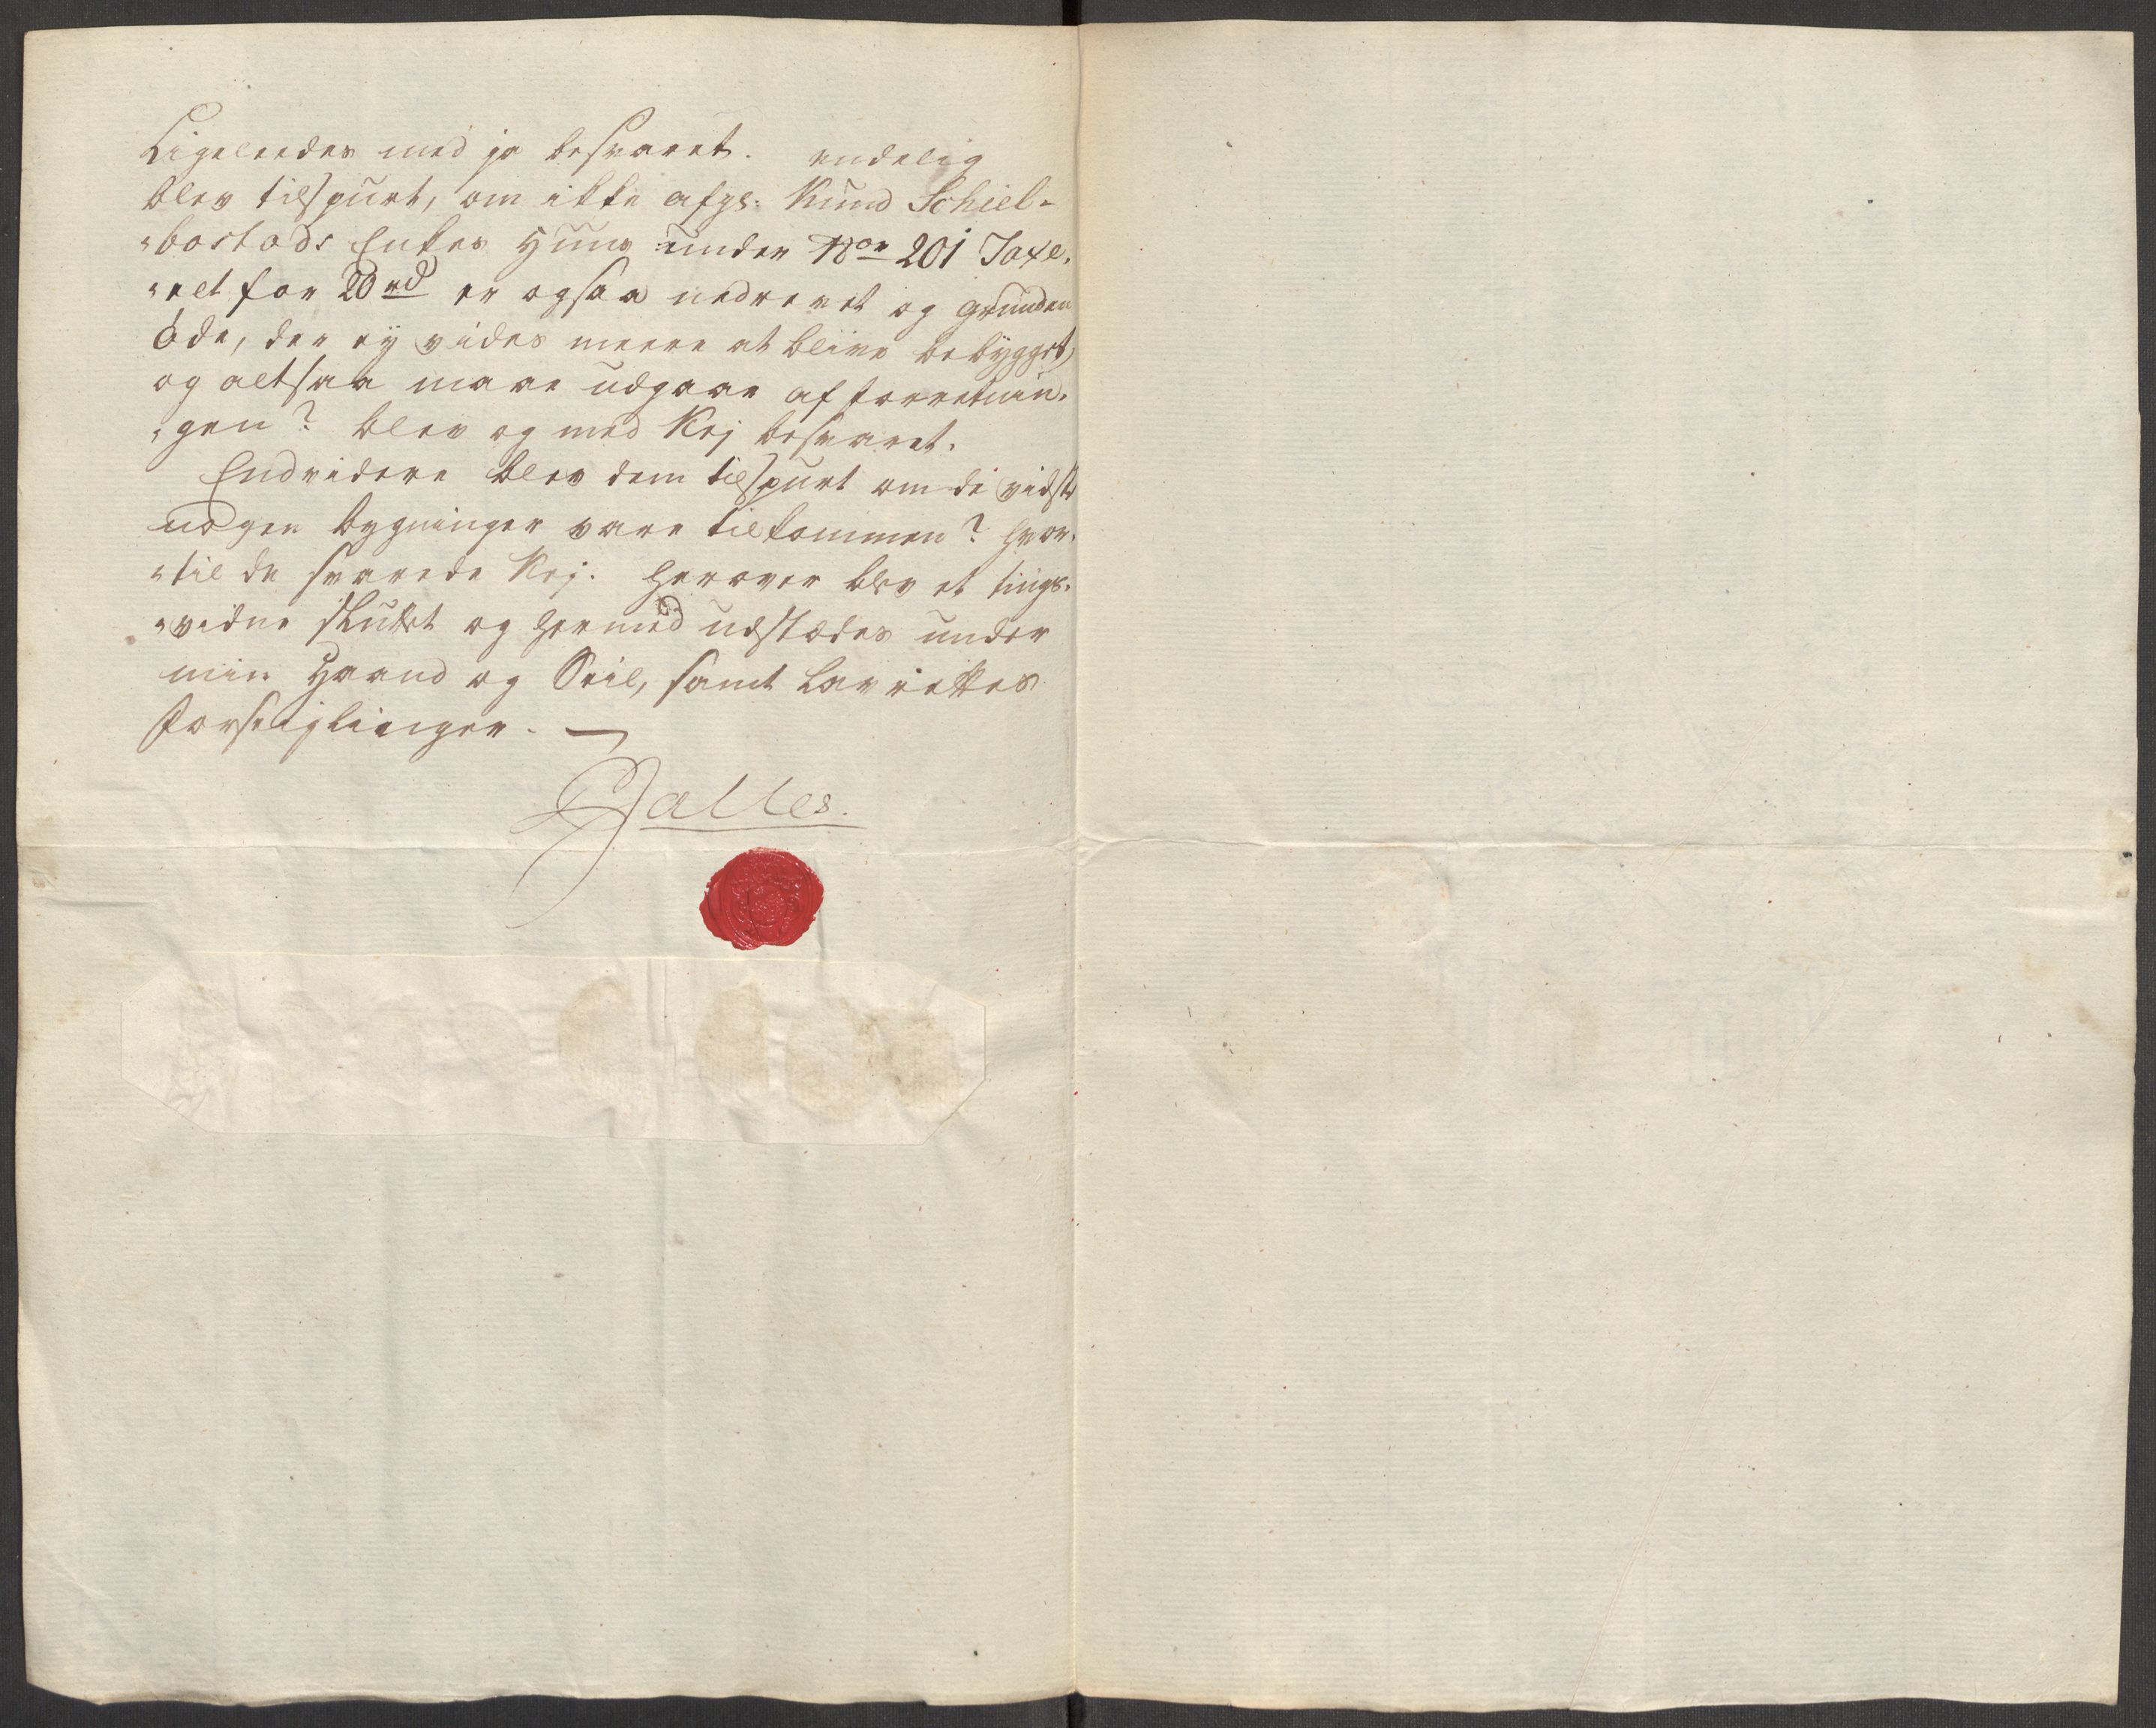 Ligeleedes med ja besvaret. endelig
blev tilspurt, om ikke afgl: Knud Schiel-
-bostads Enkes Huus under No 201 Taxe-
-ret for 20 rd er ogsaa nedrevet og grunden
öde, der ej vides meere at blive bebygget,
og altsaa maae udgaae af forretnin-
-gen? blev og med Nej besvaret.
Endvidere blev dem tilspurt om de vidste
nogen bygninger vare tilkommen? hvor-
-til de svarede Nej. Herover blev et tings-
-vidne sluttet og hermed udstædes under
min Haand og Seil, samt Lavrettes
Forseiglinger.
Salles.